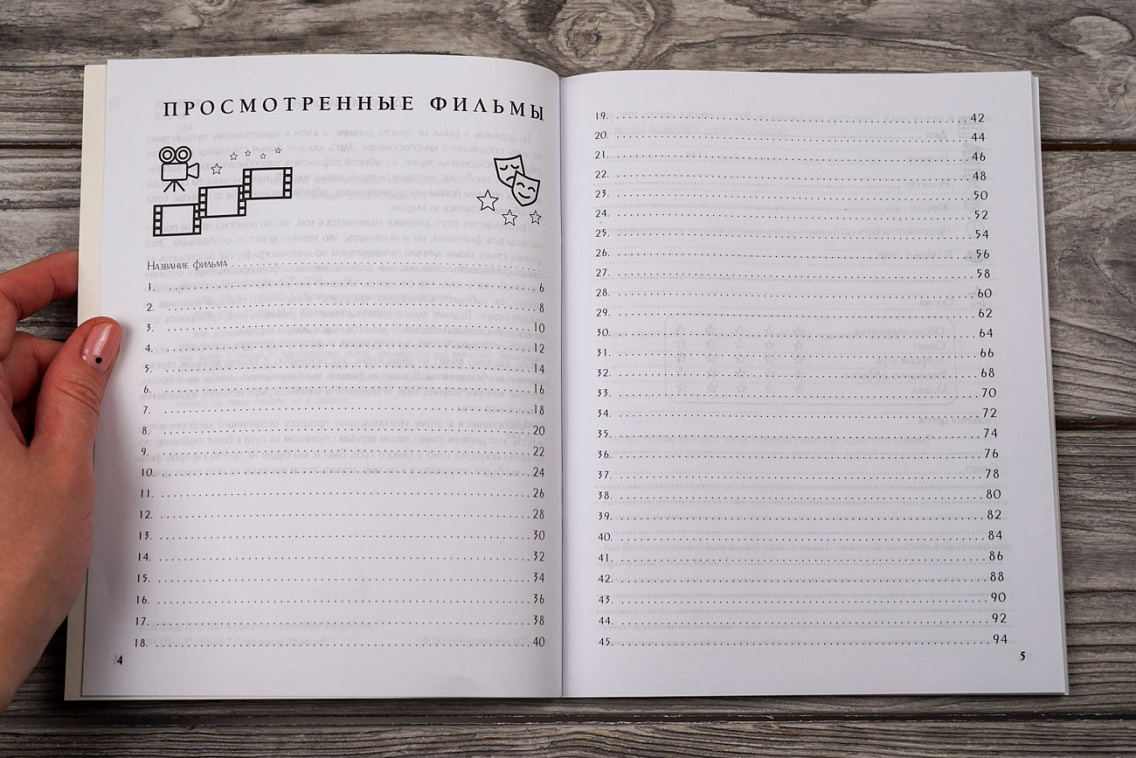 ПРОСМОТРЕННЫЕ ФИЛЬМЫ
Название фильма
1. 6
2. 8
3. 10
4. 12
5. 14
6. 16
7. 18
8. 20
9. 22
10. 24
11. 26
12. 28
13. 30
14. 32
15. 34
16. 36
17. 38
18. 40
4
19. 42
20. 44
21. 46
22. 48
23. 50
24. 52
25. 54
26. 56
27. 58
28. 60
29. 62
30. 64
31. 66
32. 68
33. 70
34. 72
35. 74
36. 76
37. 78
38. 80
39. 82
40. 84
41. 86
42. 88
43. 90
44. 92
45. 94
5